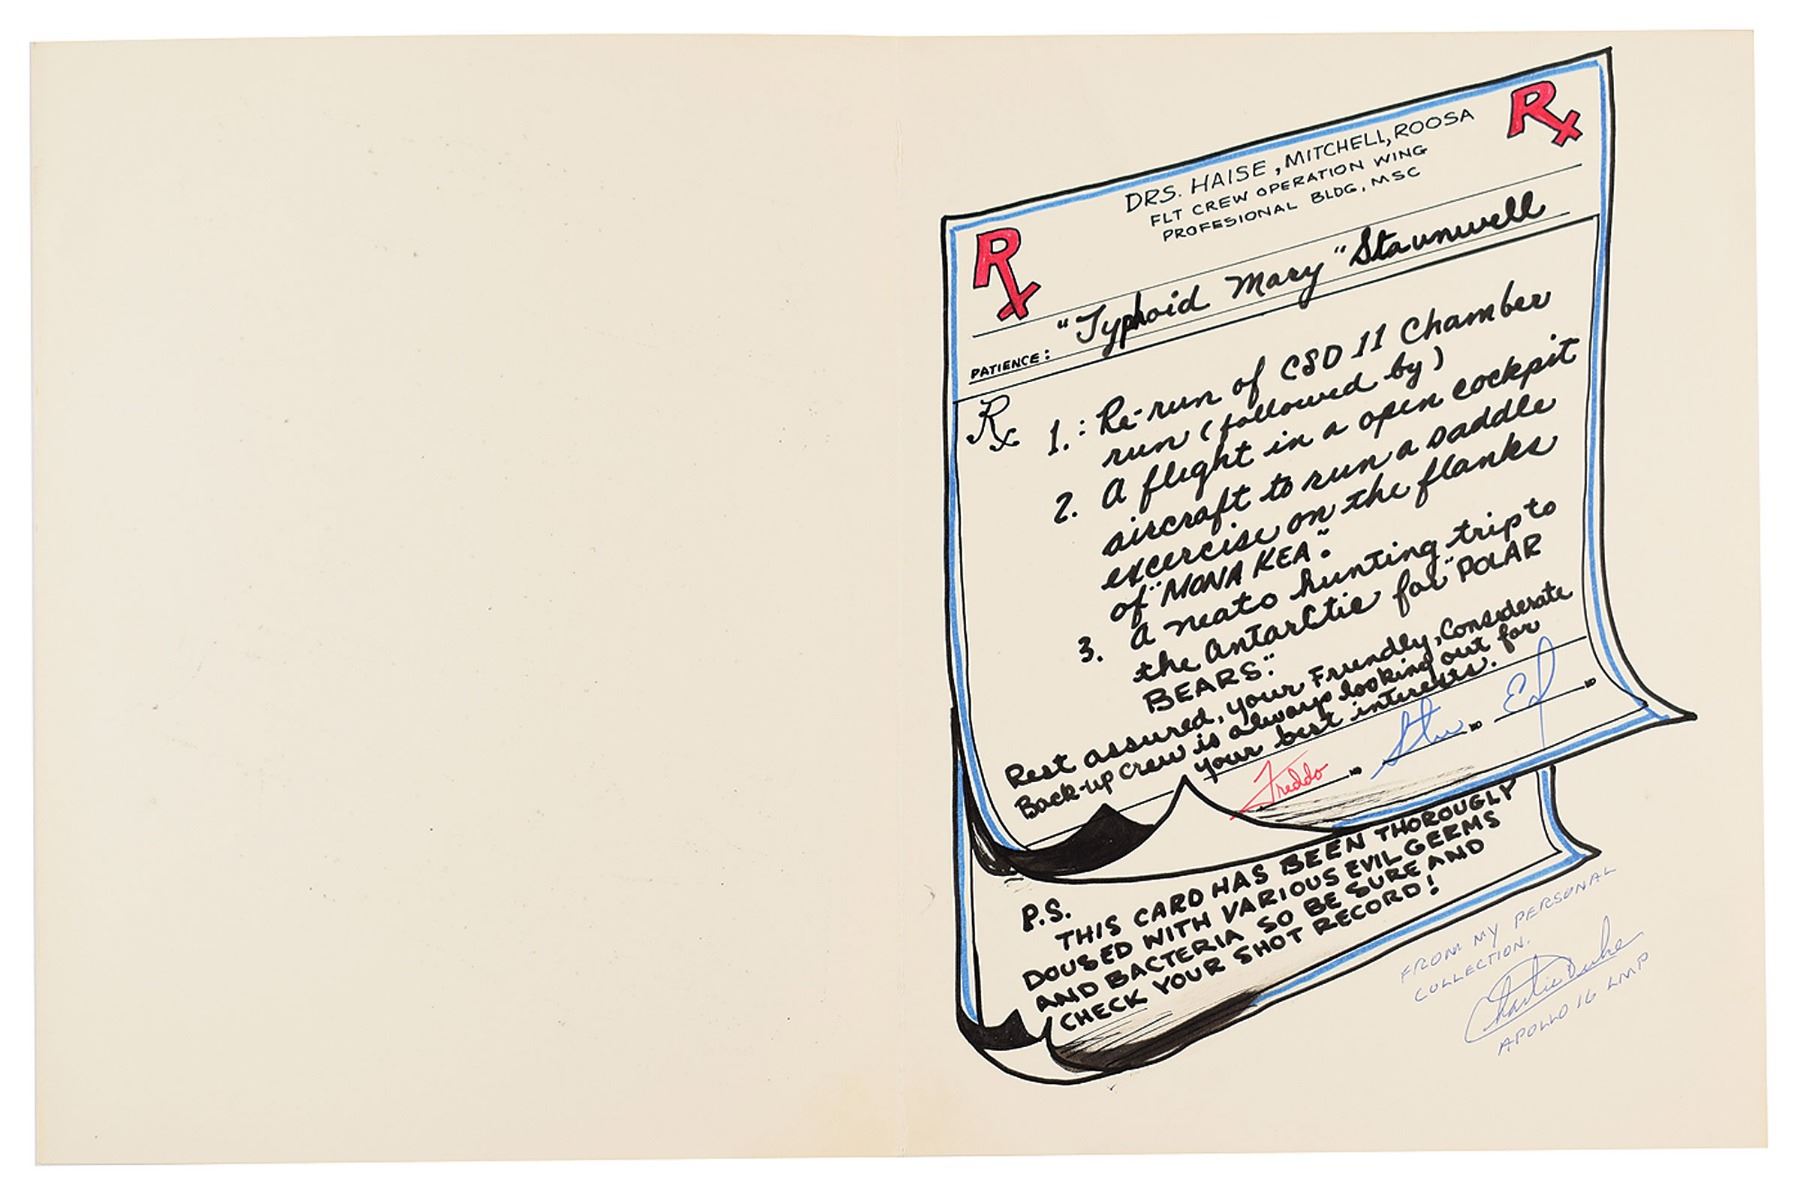 Rx
DRS. HAISE, MITCHELL, ROOSA
FLT CREW OPERATION WING
PROFESIONAL BLDG, MSC
Rx
PATIENCE: "Typhoid Mary" Staunwell
Rx 1.: Re-run of CSD 11 Chamber
run (followed by)
2. A flight in a open cockpit
aircraft to run a saddle
exercise on the flanks
of "MONA KEA".
3. A neato hunting trip to
the Antarctic for "POLAR
BEARS".
Rest assured, your Friendly, Considerate
Back-up Crew is always looking out for
your best interests. for
Freddo MD Stu MD Ed MD
P.S.
THIS CARD HAS BEEN THOROUGLY
DOUSED WITH VARIOUS EVIL GERMS
AND BACTERIA SO BE SURE AND
CHECK YOUR SHOT RECORD!
FROM MY PERSONAL
COLLECTION.
Charlie Duke
APOLLO 16 LMP